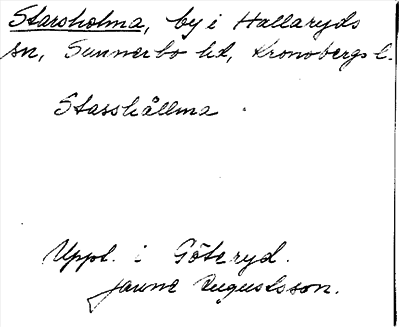 Starsholma, by i Hallaryds
sn, Sunnerbo hd, Kronobergs l.
Stasshållma
Uppl. i Göteryd.
Janne Augustsson.